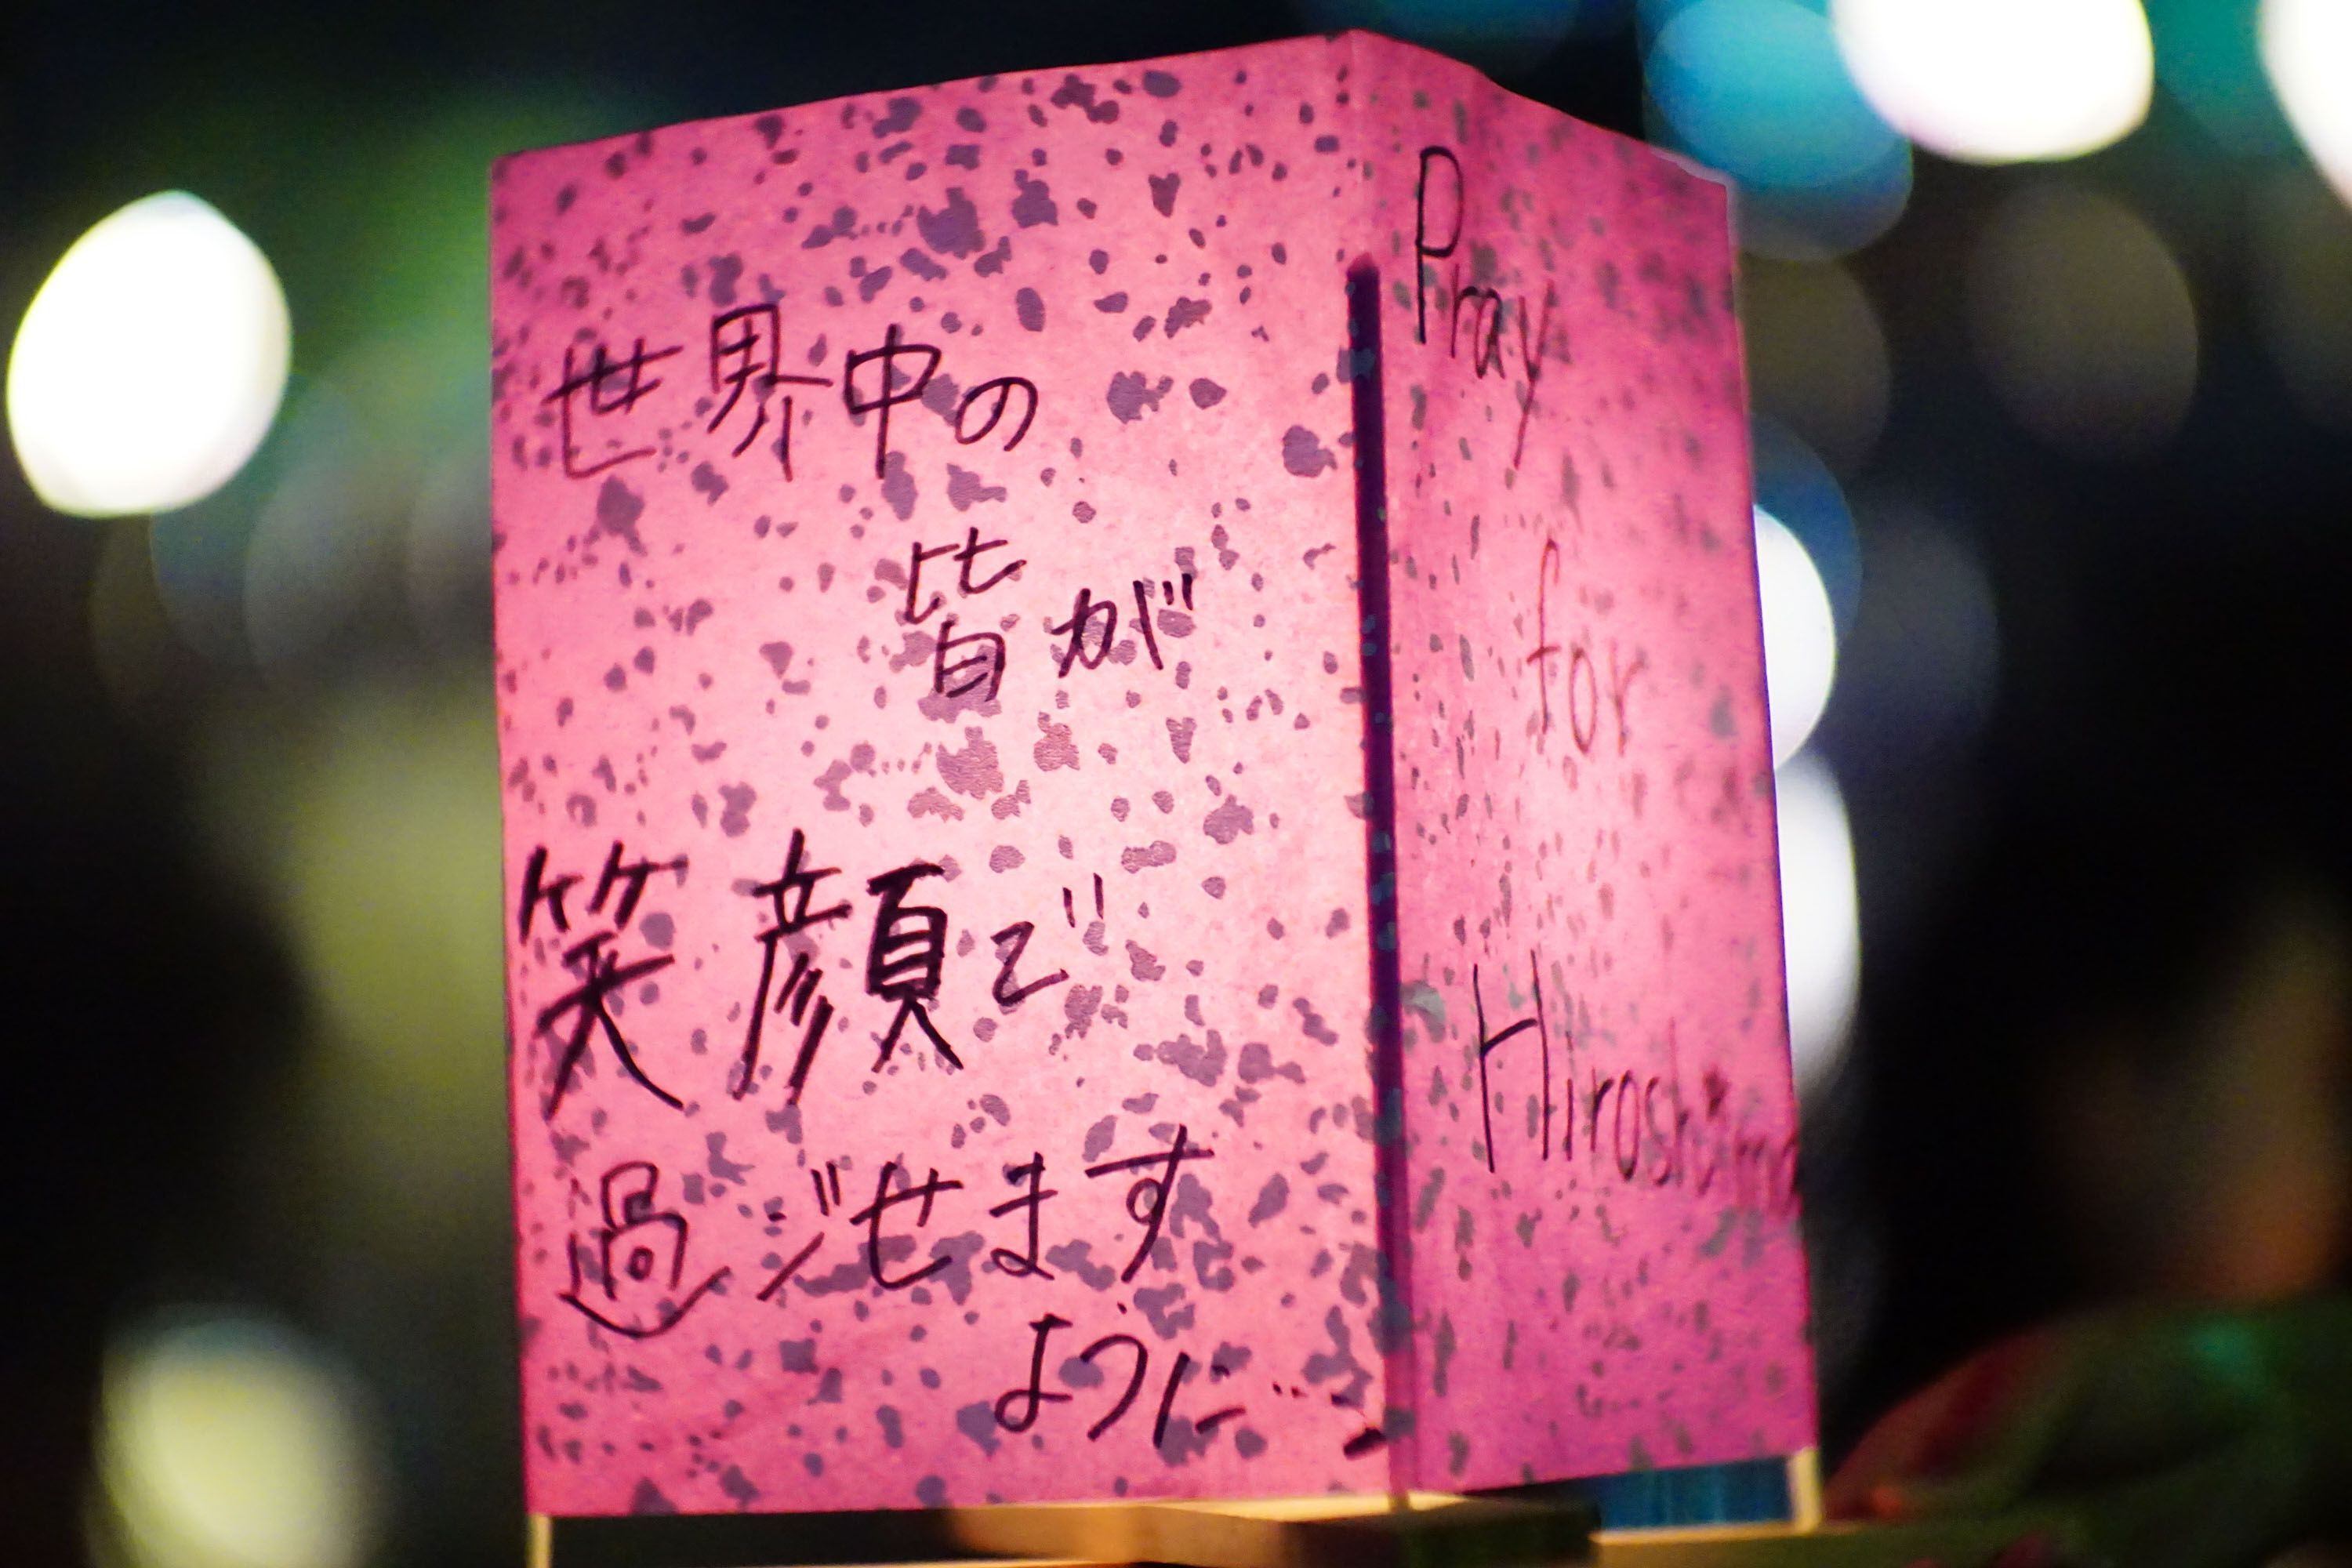 世界中の
皆が
笑顔で
過ごせます
ように…
Pray
for
Hiroshima